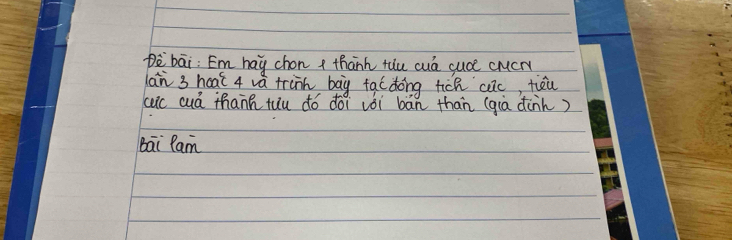 Đề bài: Em hãy chọn 1 thành tựu của cuộc CMCN
lần 3 hoặc 4 và trình bày tác động tích cực, tiêu
cực của thành tựu đó đối với bản thân (gia đình)
Bài làm